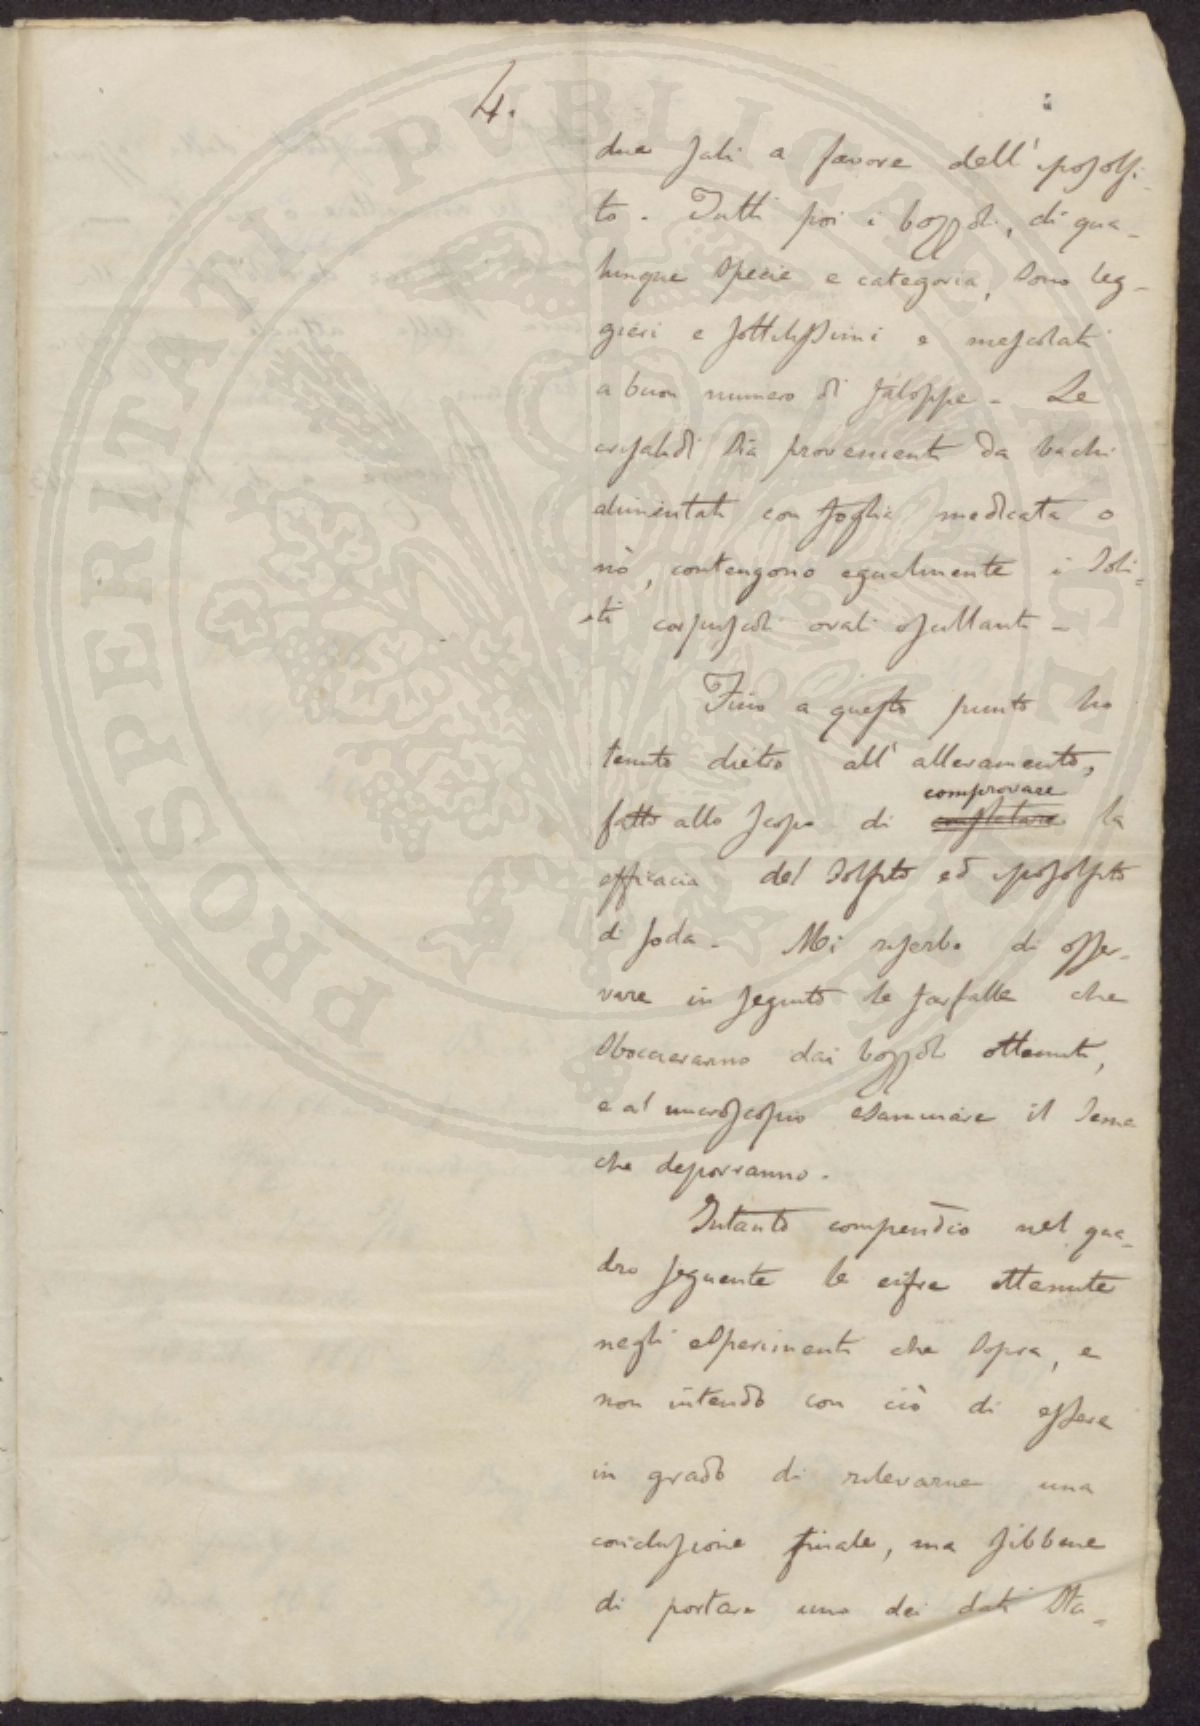 4.
due sali a favore dell' iposolfi-
to. Tutti poi i bozzoli, di qua-
lunque specie e categoria, sono leg-
gieri e sottilissimi e mescolati
a buon numero di faloppe - Le
crisalidi sia provenienti da bachi
alimentati con foglia medicata o
nò, contengono egualmente i soli-
ti corpuscoli ovali oscillanti -
Fino a questo punto ho
tenuto dietro all' allevamento,
comprovare
fatto allo scopo di constatare la
efficacia del solfito ed iposolfito
di soda - Mi riserbo di osser-
vare in seguito le farfalle che
sboccieranno dai bozzoli ottenuti,
e al microscopio esaminare il seme
che deporranno.
Intanto compendio nel qua-
dro seguente le cifre ottenute
negli esperimenti che sopra, e
non intendo con ciò di essere
in grado di rilevarne una
conclusione finale, ma sibbene
di portare uno dei dati sta-
PROSPERITATI PVBLICAE AVGENDAE